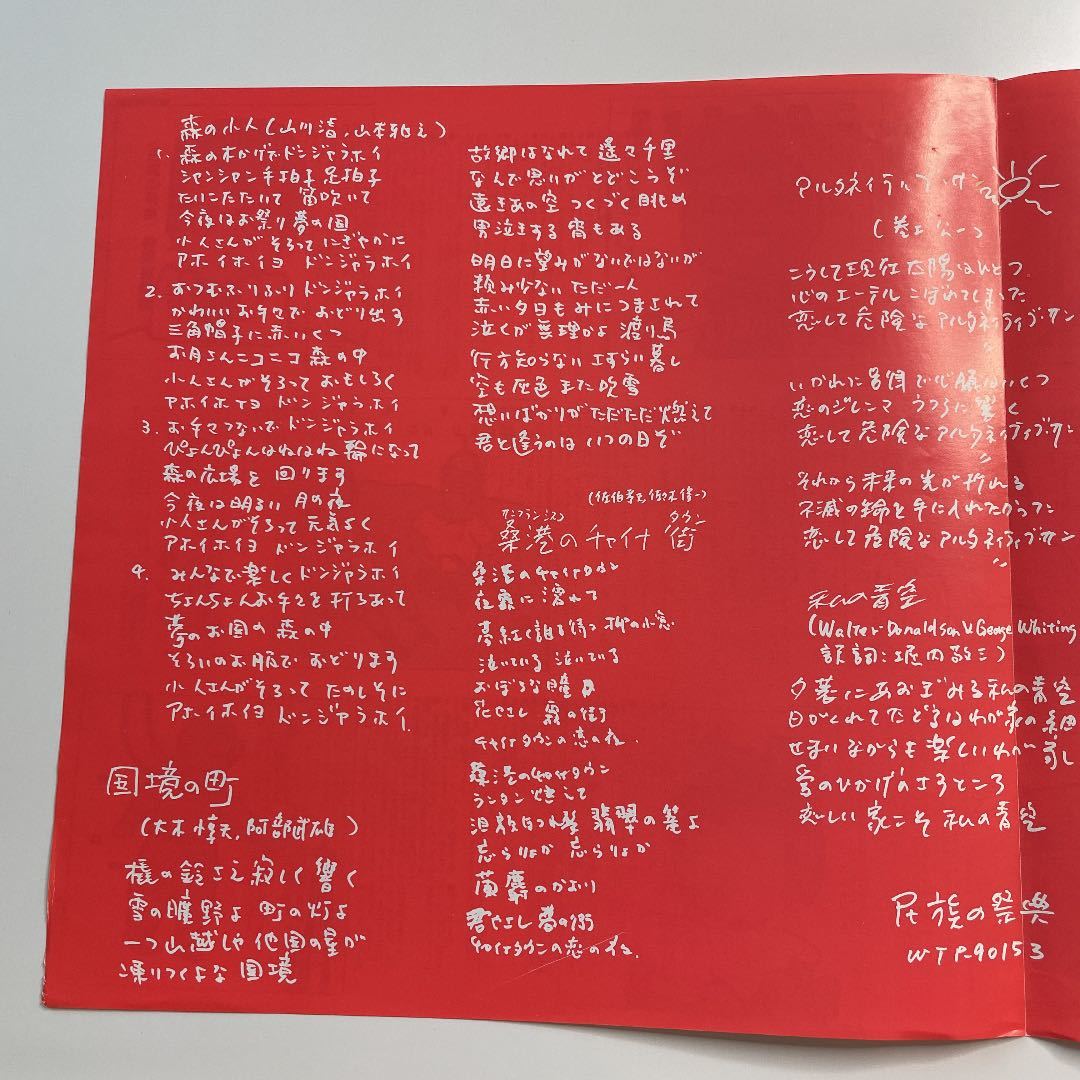 森の小人(山川清,山本雅之)
1. 森の木かげでドンジャラホイ
シャンシャン手拍子足拍子
たいこたたいて 笛吹いて
今夜はお祭り夢の国
小人さんがそろってにぎやかに
アホイホイヨ ドンジャラホイ
2. おつむふりふり ドンジャラホイ
かわいいお手々で おどり出す
三角帽子に赤いくつ
お月さんニコニコ 森の中
小人さんがそろって おもしろく
アホイホイヨ ドンジャラホイ
3. お手々つないで ドンジャラホイ
ぴょんぴょんはねはね 輪になって
森の広場を 回ります
今夜は明るい 月の夜
小人さんがそろって 元気よく
アホイホイヨ ドンジャラホイ
4. みんなで楽しくドンジャラホイ
ちょんちょんお手々を 打ちあって
夢のお国の 森の中
そろいのお服で おどります
小人さんがそろって たのしそに
アホイホイヨ ドンジャラホイ.
国境の町
(大木惇夫,阿部武雄)
橇の鈴さえ寂しく響く
雪の曠野よ 町の灯よ
一つ山越しゃ 他国の星が
凍りつくよな 国境
故郷はなれて 遥々千里
なんで思いがとどこうぞ
遠きあの空 つくづく眺め
男泣きする 宵もある
明日に望みがないではないが
頼み少ない ただ一人
赤い夕日も みにつまされて
泣くが無理かよ 渡り鳥
行方知らない さすらい暮し
空も灰色 また吹雪
想いばかりが ただただ燃えて
君と逢うのは いつの日ぞ
(佐伯孝夫,佐々木俊一)
サンフランシスコ タウン
桑港のチャイナ街
桑港のチャイナタウン
夜霧に濡れて
夢紅く誰を待つ 柳の小窓
泣いている 泣いている
おぼろな瞳よ
花やさし 霧の街
チャイナタウンの恋の夜.
桑港のチャイナタウン
ランタン燃えて
泪顔ほつれ髪 翡翠の篭よ
忘らりょか 忘らりょか
蘭麝のかおり
君やさし 夢の街
チャイナタウンの恋の夜.
アルタネイティブ・サン
(巻上公一)
こうして現在太陽はひとつ
心のエーテル こぼれてしまった
恋して危険な アルタネイティブ・サン
いかれた習慣で心臓はいくつ
恋のジレンマ うつろに響く
恋して危険な アルタネイティブ・サン
それから未来の光が折れる
不滅の鍵を手に入れたからって
恋して危険な アルタネイティブ・サン
私の青空
(Walter Donaldson & George Whiting
訳詞:堀内敬三)
夕暮にあおぎみる 私の青空
日がくれて たどるはわが家の細
せまいながらも 楽しいわが家
愛のひかげのさすところ
恋しい 家こそ 私の青空
民族の祭典
WTP-90153